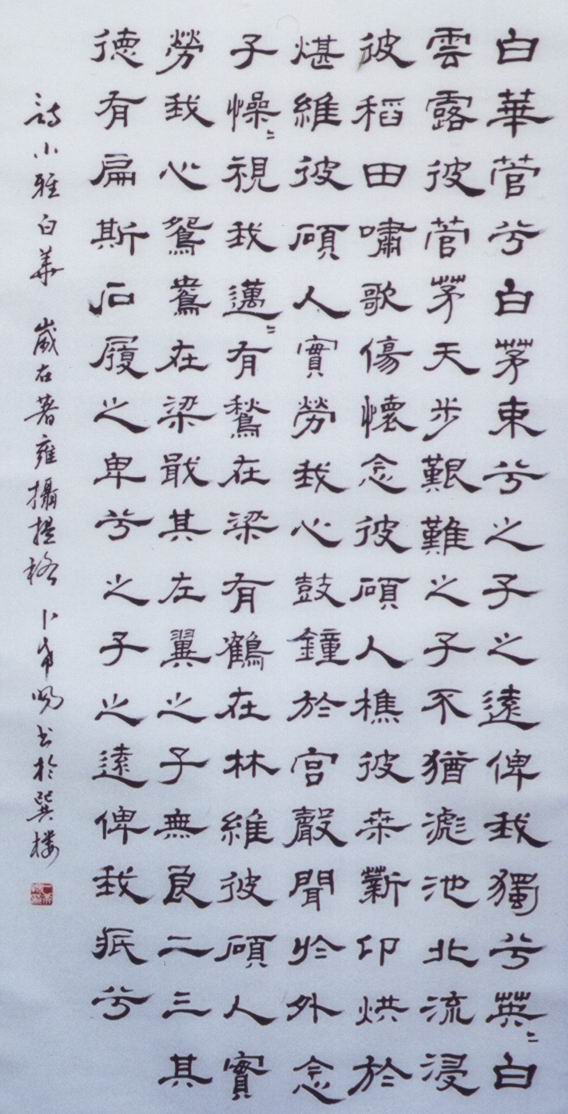 白華菅兮白茅束兮之子之遠俾我獨兮英〻白
雲露彼菅茅天步艱難之子不猶滮池北流浸
彼稻田嘯歌傷懷念彼碩人樵彼桒薪卬烘於
煁維彼碩人實勞我心鼓鐘於宫聲聞於外念
子懆〻視我邁〻有鶖在梁有鶴在林維彼碩人實
勞我心鴛鴦在梁戢其左翼之子無良二三其
德有扁斯石履之卑兮之子之遠俾我疧兮
詩小雅白華 歲在著雍攝提格 卜希暘書於巽樓